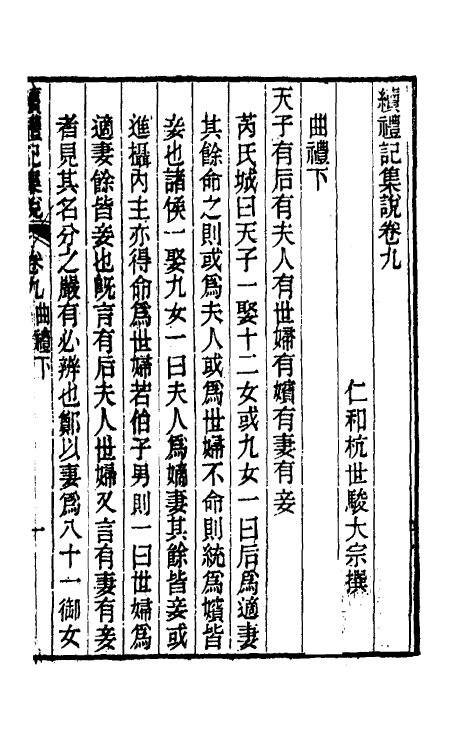 續禮記集說卷九
仁和杭世駿大宗撰
曲禮下
天子有后有夫人有世婦有嬪有妻有妾
芮氏城曰天子一娶十二女或九女一曰后爲適妻
其餘命之則或爲夫人或爲世婦不命則統爲嬪皆
妾也諸侯一娶九女一曰夫人爲嫡妻其餘皆妾或
進攝內主亦得命爲世婦若伯子男則一曰世婦爲
適妻餘皆妾也旣言有后夫人世婦又言有妻有妾
者見其名分之嚴有必辨也鄭以妻爲八十一御女
續禮記集說 卷九 曲禮下 一